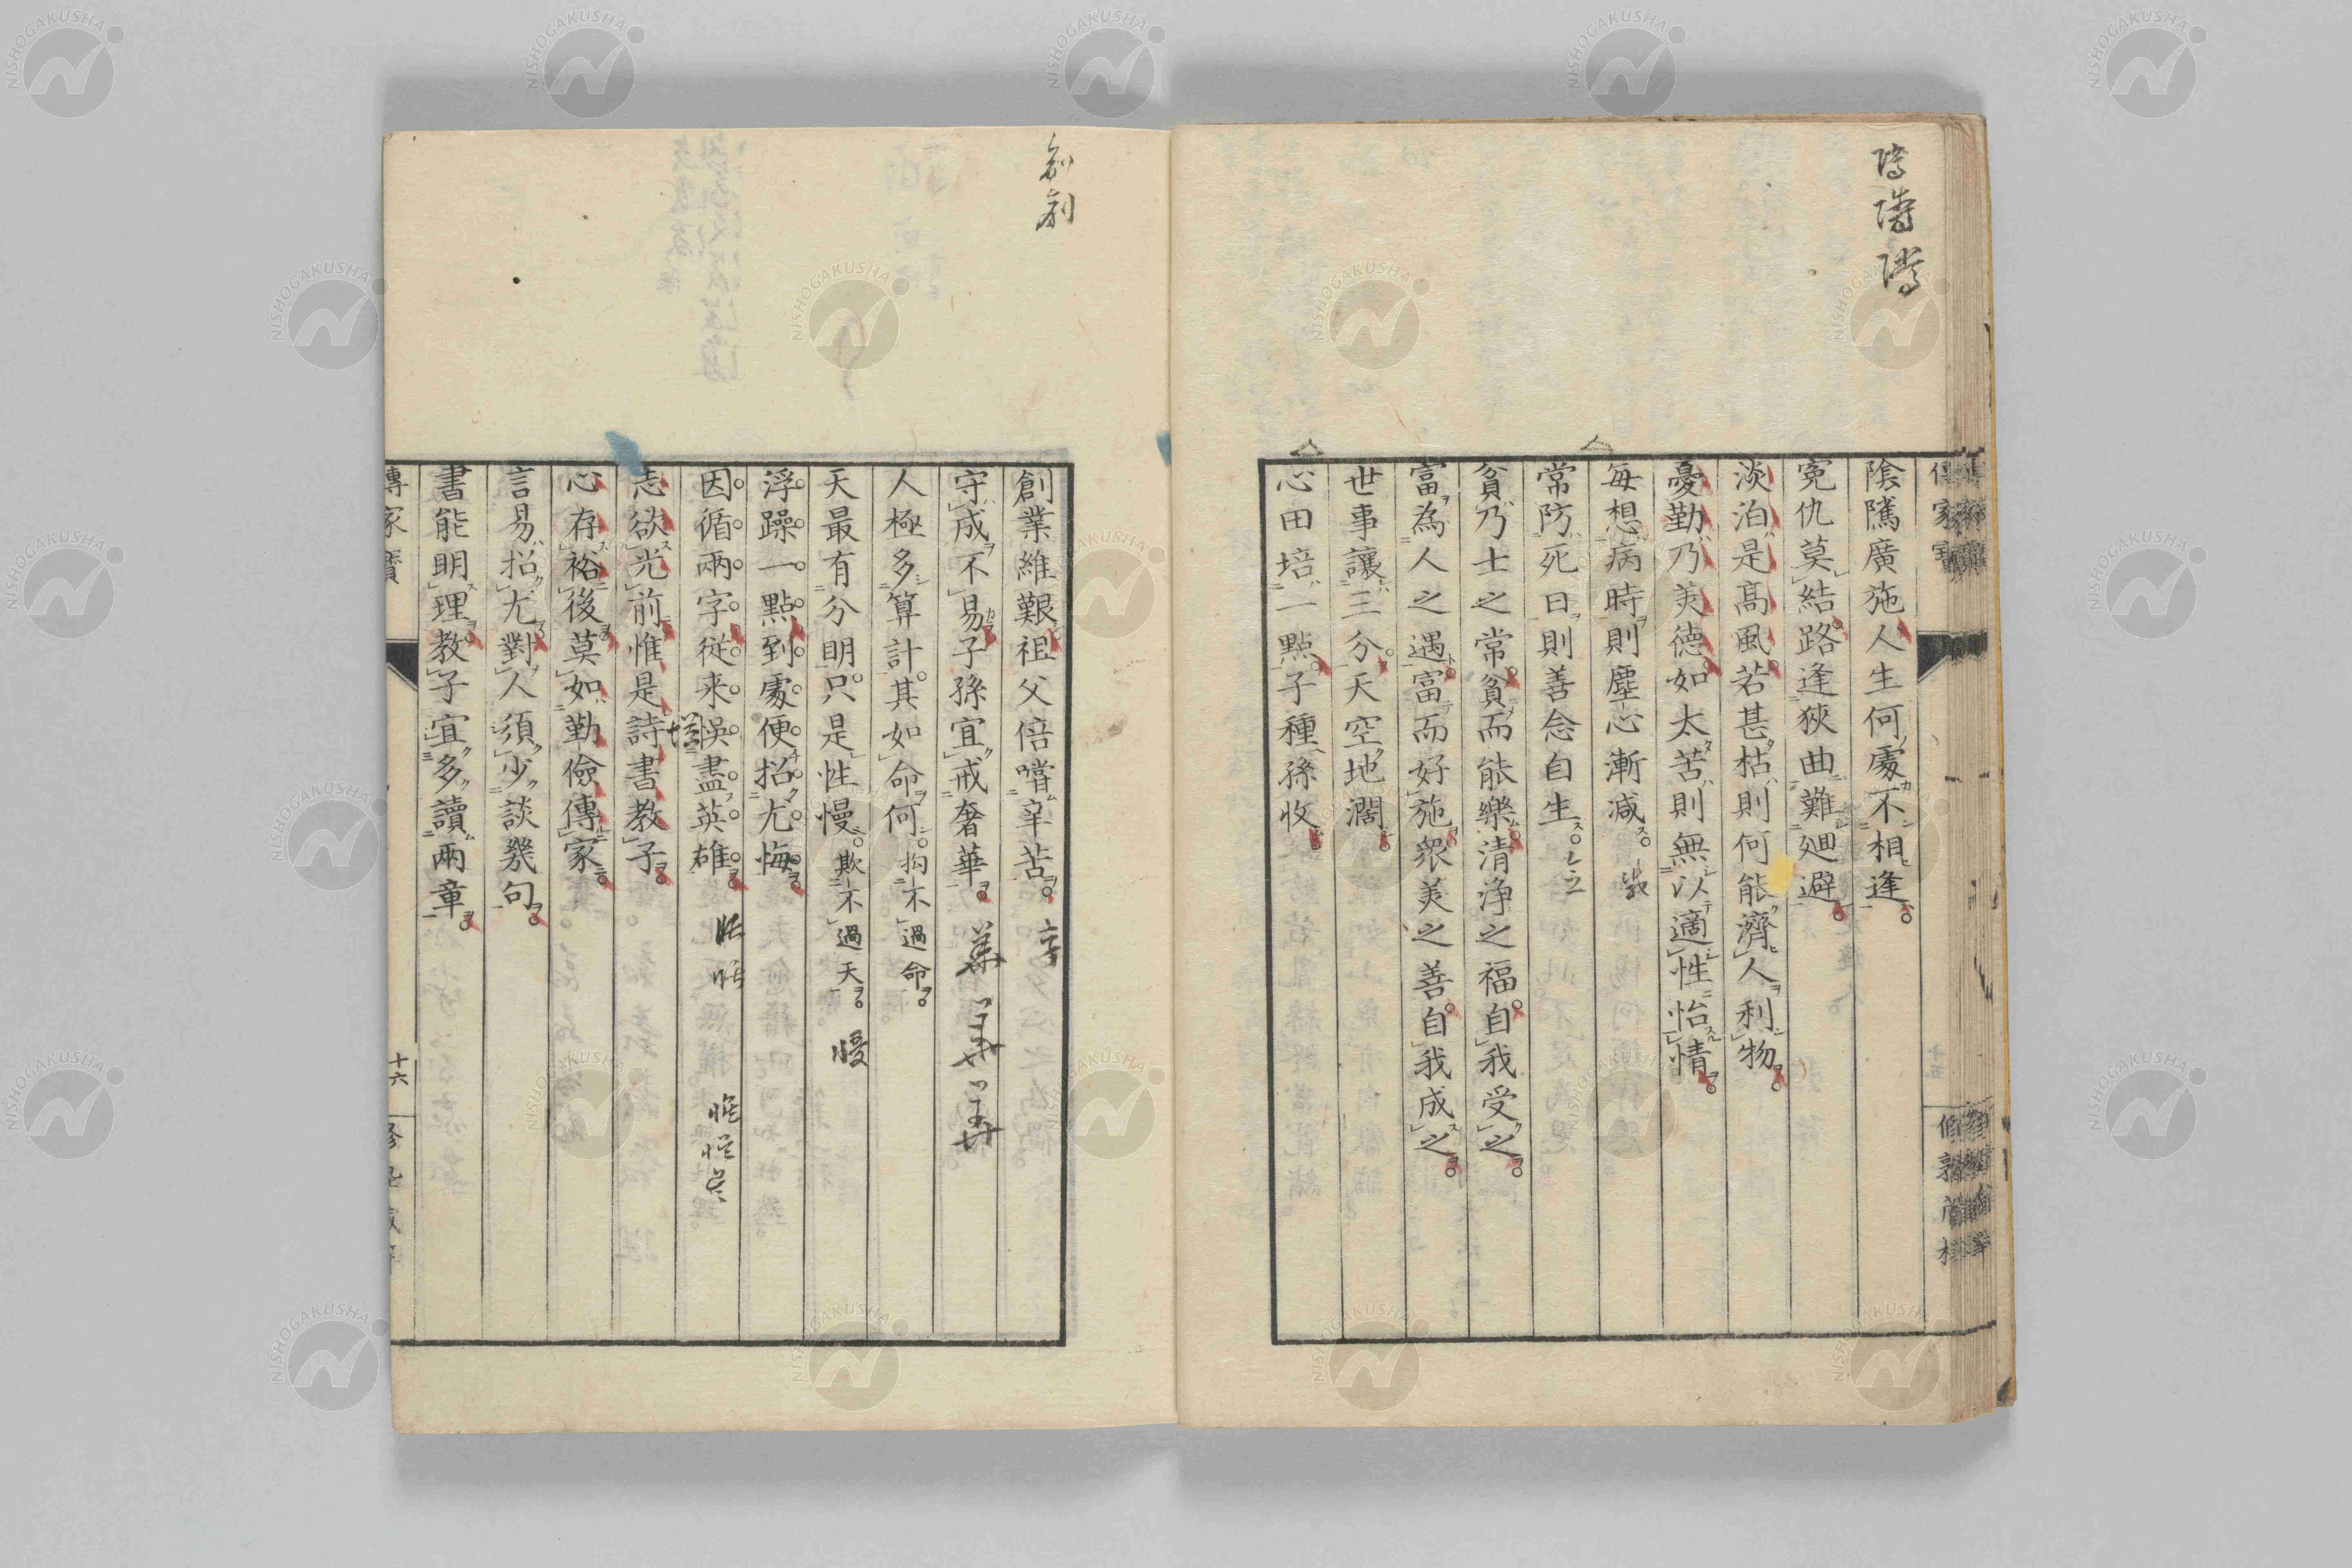 陰隲廣施人生何處不相逢。
寃仇莫結路逢狹曲難廻避。
淡泊是高風若甚枯則何能濟人利物。
憂勤乃美德如太苦則無以適性怡情。
每想病時則塵心漸减。
常防死日則善念自生。
貧乃士之常。貧而能樂。清浄之福。自我受之。
富為人之遇。富而好施。衆美之善。自我成之。
世事讓三分。天空地濶。
心田培一點。子種孫收。
創業維艱祖父倍嚐辛苦。
守成不易子孫宜戒奢華。
人極多算計。其如命何。拘不過命。
天最有分明。只是性慢。欺不過天。
浮躁一點到處便招尤悔。
因循兩字從来悞盡英雄。
志欲光前惟是詩書教子。
心存裕後莫如勤儉傳家。
言易招尤對人須少談幾句。
書能明理教子宜多讀兩章。
傳家寳
十六
NISHOGAKUSHA